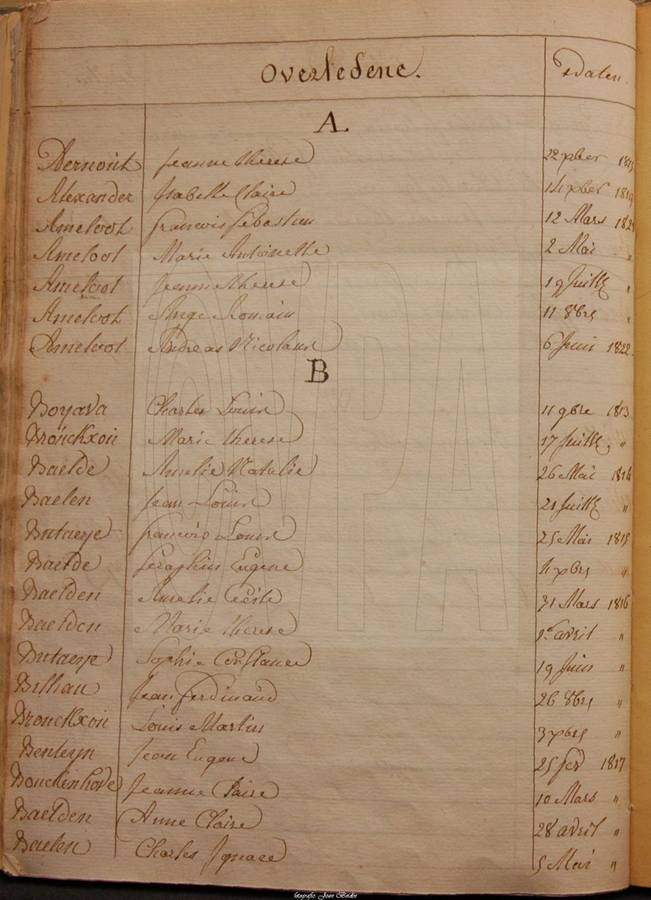 Overledene. Daten.
A
Dernout Jeanne Therese 22 xber
Alexander Isabelle Claire 14 xber 1819
Ameloot francois sebastien 12 Mars
Ameloot Marie Antoinette 2 Mai "
Ameloot Jeanne therese 19 Juillt "
Ameloot Ange Romain 11 8bre "
Ameloot Andreas Nicolaus 6 Juin 1822.
B
Boyava Charles Louis 11 9bre 1813
Bronckxoii Marie therese 17 Juillt "
Baelde Amelie Natalie 26 Mai 1814
Baelen Jean Louis 21 Juillt "
Butaeye francois Louis 25 Mai 1815
Baelde Seraphin Eugene 4 xbre "
Baelden Amelie Cecile 31 Mars 1816
Baelden Marie therese 1er avril "
Butaeye Sophie Constance 19 Juin "
Billiau Jean ferdinand 26 8bre "
Bronckxoii Louis Martin 3 xbre "
Benteyn Jean Eugene 25 fev 1817
Bouckenhove Jeanne Claire 10 Mars "
Baelden Anne Claire 28 avril "
Baelen Charles Ignace 5 Mai "
VPA